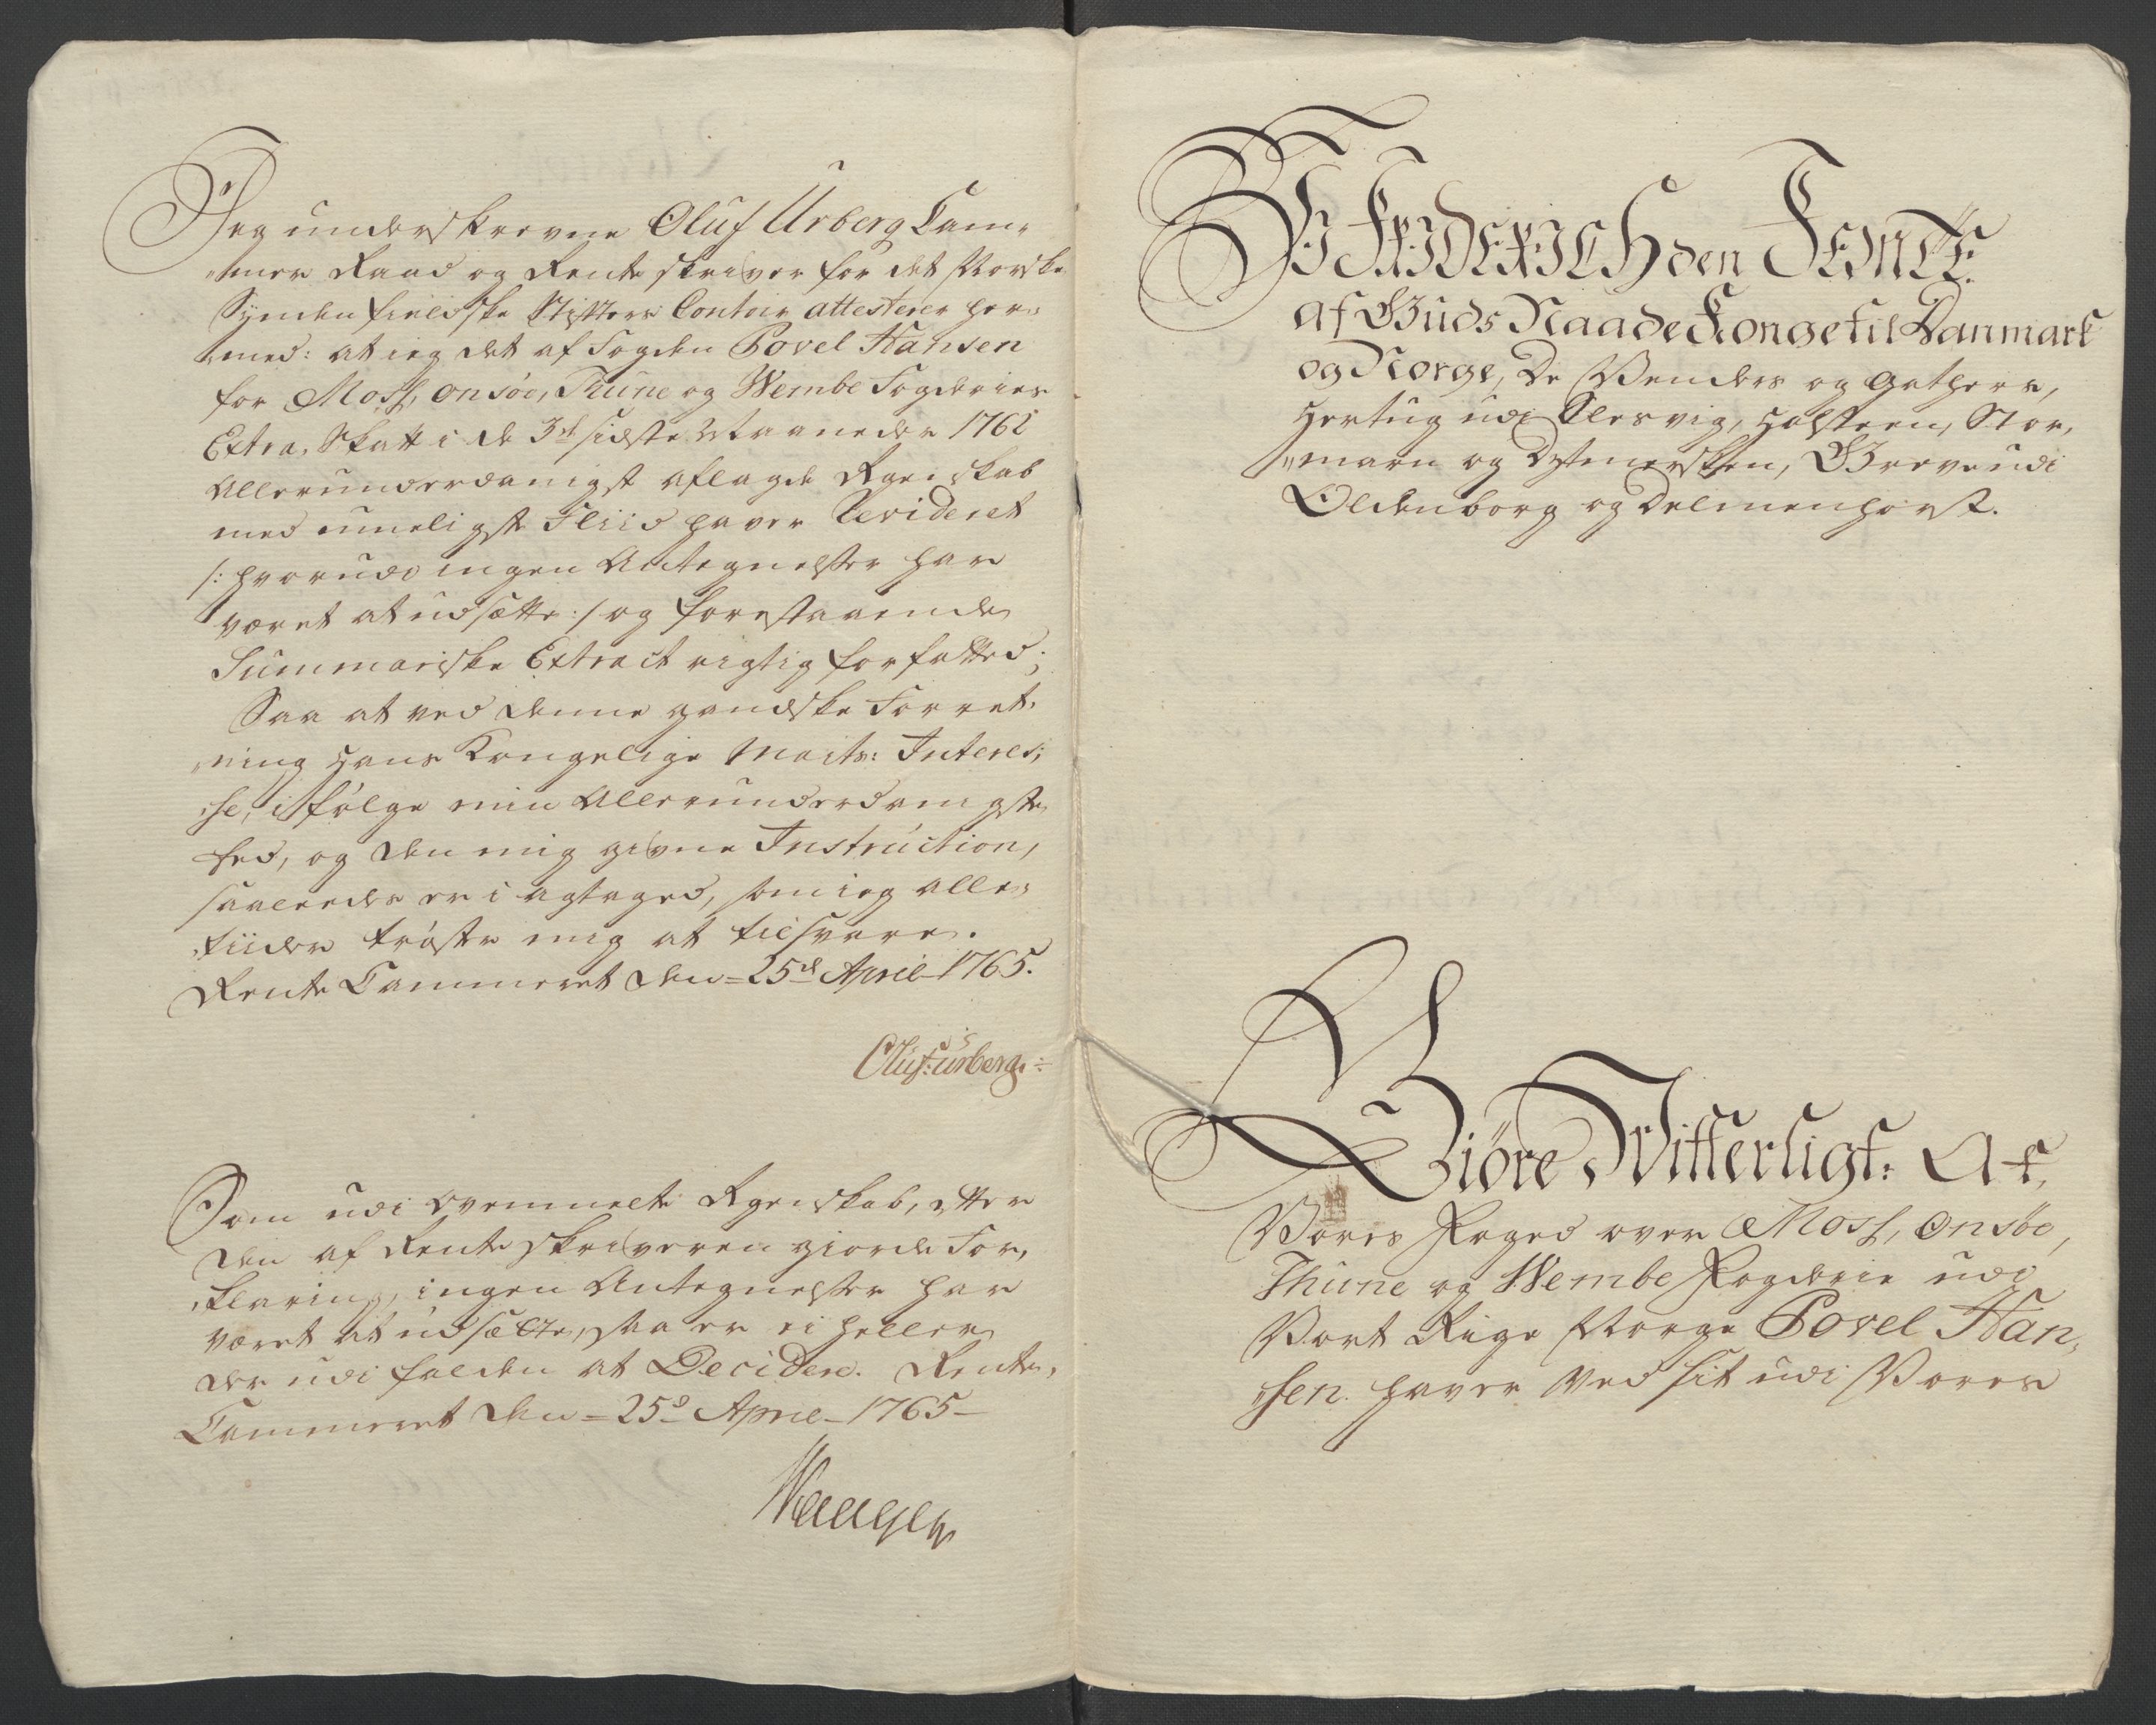 Jeg underskrevne Oluf Urberg Cam-
"mer Raad og Rente skriver for det Norske
Synden fieldske Stifters Contoir attesterer her-
"med: at ieg det af Fogden Povel Hansen
for Moss, Onsøe, Thune og Wembe Fogderies
Extra, Skatt i de 3de sidste Maaneder 1762
Allerunderdanigst aflagde Regenskab
med mueligste Fliid haver Revideret
/: hvorudi ingen Antegnelser har
været at udsætte :/ og forestaaende
Summariske Extract rigtig forfatted;
Saa at ved denne gandske Forret-
"ning Hans Kongelige Maits: Interes-
"se, i følge min Allerunderdanigste
Eed, og den mig givne Instruction,
saaledes er i agtaged, som ieg alle-
"tiider trøster mig at tilsvare.
Rente Cammeret den 25de April 1765.
Oluf: Urberg.
Som udi ovenmelte Regenskab, etter
den af Rente skriveren giorde For-
"klaring, ingen Antegnelser har
været at udsætte, saa er ei heller
der udi falden at Decidere. Rente-
Cammeret den 25de April 1765
VI FRIDERICH den FEMTE
af Guds Naade Konge til Danmark
og Norge, De Venders og Gothers,
Hertug udi Slesvig, Holsteen, Stor-
"marn og Dytmersken, Greve udi
Oldenborg og Delmenhorst.
Giøre Witterligt: At,
Vores Foged over Moss, Onsøe,
Thune og Wembe Fogderie udi
Vort Rige Norge Povel Han-
"sen haver Ved sit udi Vores